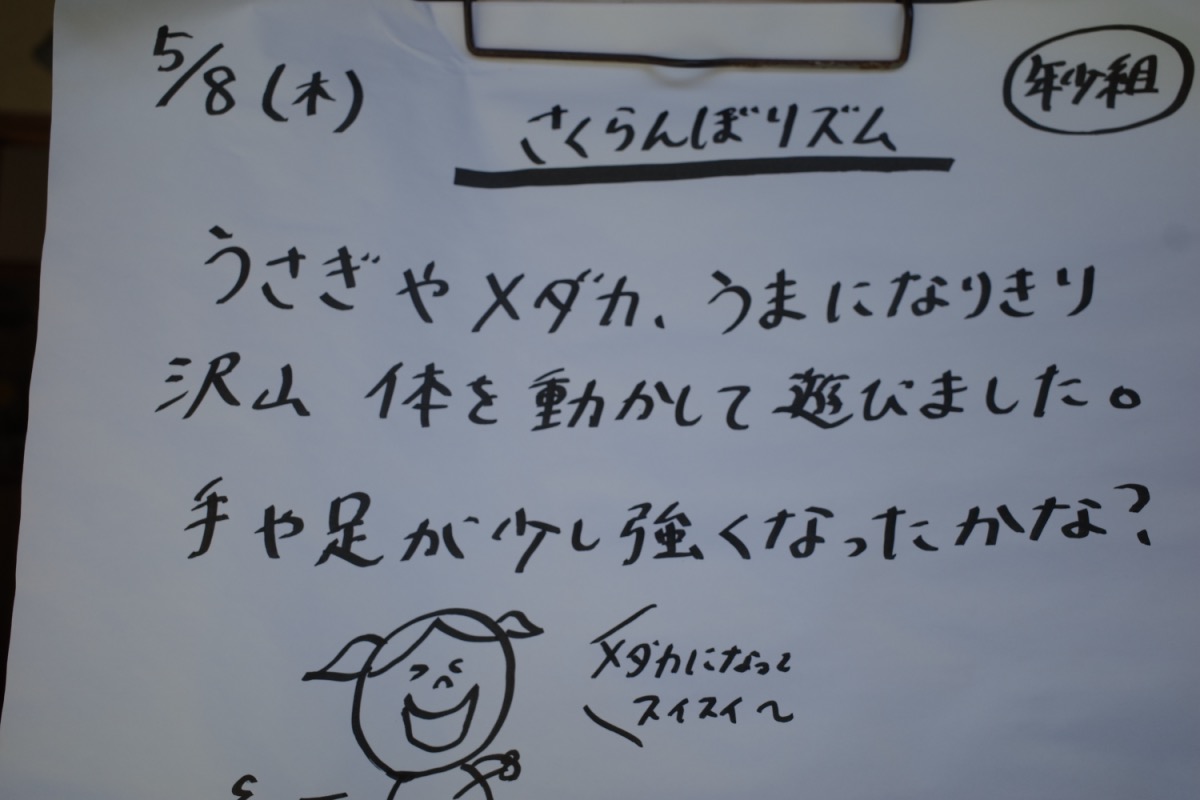 5/8(木)
年少組
さくらんぼリズム
うさぎやメダカ、うまになりきり
沢山 体を動かして遊びました。
手や足が少し強くなったかな?
メダカになって
スイスイ～